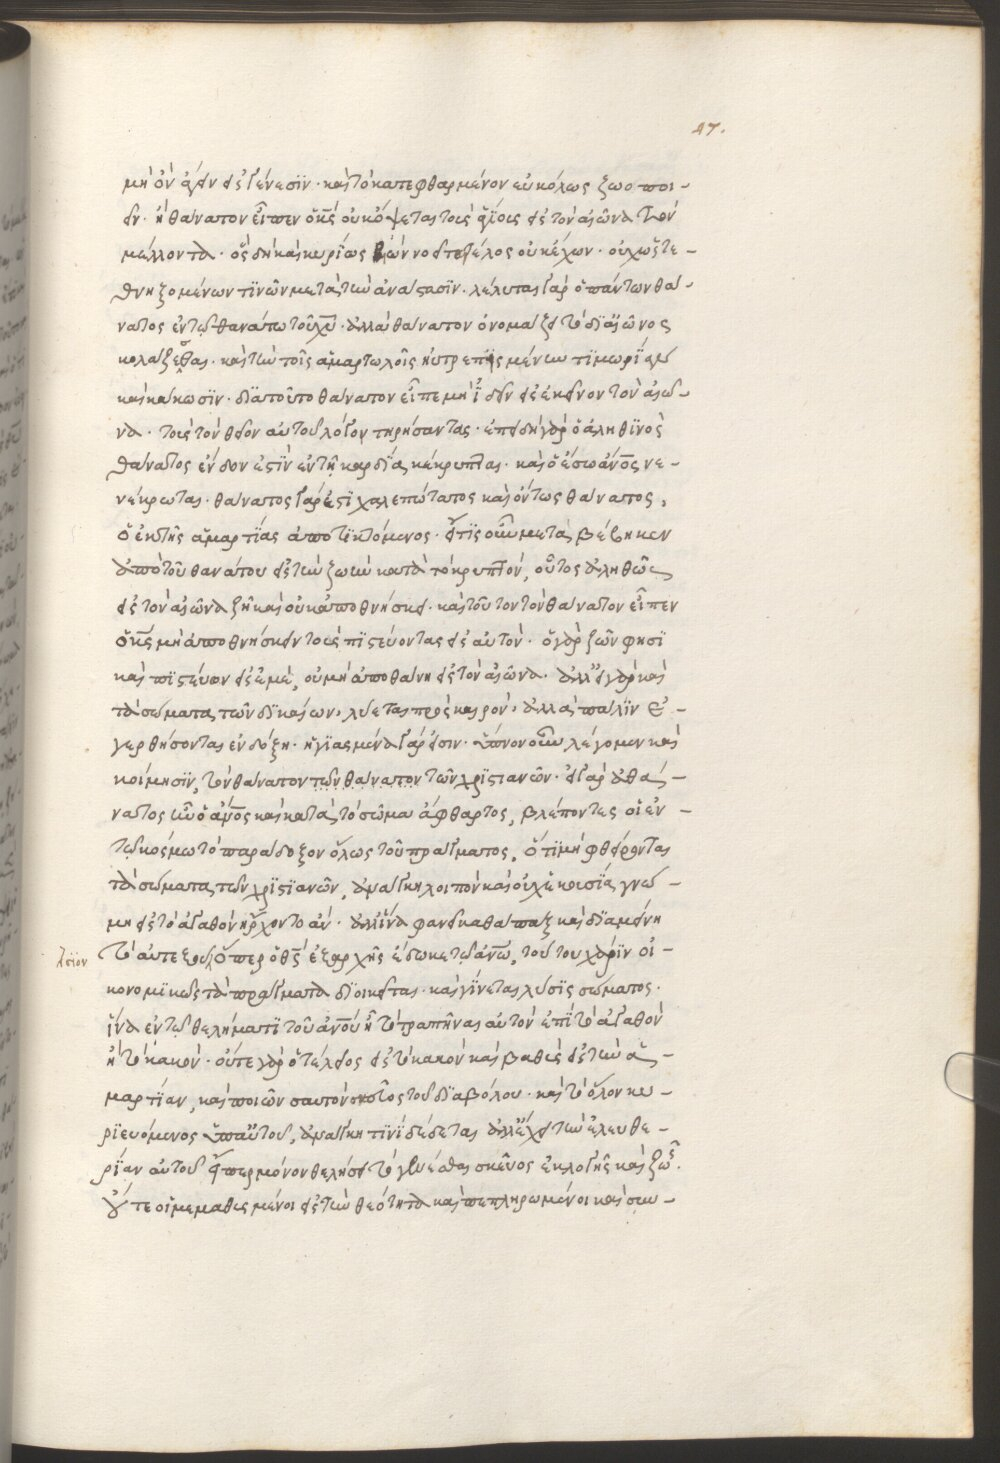 47.
μὴ ὂν ἄγειν εἰς γένεσιν· καὶ τὸ κατεφθαρμένον εὐκόλως ζωοποι-
εῖν· ἢ θάνατον εἶπεν ὁ κς οὐκ ὄψεται τοῖς ἁγίοις εἰς τὸν αἰῶνα τὸν
μέλλοντα· ὃς δὴ καὶ κυρίως αἰὼν νοεῖται τέλος οὐκ ἔχων· οὐχ ὥς τε-
θνηξομένων τινῶν μετὰ τὴν ἀνάστασιν· λέλυται γὰρ ὁ πάντων θά-
νατος ἐν τῷ θανάτῳ τοῦ χυ· ἀλλὰ θάνατον ὀνομάζει τὸ δι᾽ αἰῶνος
κολάζεσθαι· καὶ τὴν τοῖς ἁμαρτωλοῖς ηὐτρεπισμένην τιμωρίαν
καὶ κάκωσιν· διὰ τοῦτο θάνατον εἶπε μὴ ἰδεῖν εἰς ἐκεῖνον τὸν αἰῶ-
να· τοὺς τὸν θεῖον αὐτοῦ λόγον τηρήσαντας· ἐπειδὴ γὰρ ὁ ἀληθινὸς
θάνατος ἔνδον ἐστὶν ἐν τῇ καρδίᾳ κέκρυπται· καὶ ὁ ἔσω ἄνος νε-
νέκρωται· θάνατος γάρ ἐστι χαλεπώτατος καὶ ὄντως θάνατος,
ὁ ἐκ τῆς ἁμαρτίας ἀποτικτόμενος· εἴ τις οὖν μεταβέβηκεν
ἀπὸ τοῦ θανάτου εἰς τὴν ζωὴν κατὰ τὸ κρυπτὸν, οὗτος ἀληθῶς
εἰς τὸν αἰῶνα ζῆ καὶ οὐκ ἀποθνήσκει· καὶ τοῦτον τὸν θάνατον εἶπεν
ὁ κς μὴ ἀποθνήσκειν τοὺς πιστεύοντας εἰς αὐτόν· ὁ γὰρ ζῶν φησὶ
καὶ πιστεύων εἰς ἐμὲ, οὐ μὴ ἀποθάνη εἰς τὸν αἰῶνα· ἀλλ᾽ εἰ γὰρ καὶ
τὰ σώματα τῶν δικαίων, λύεται πρὸς καιρόν, ἀλλὰ πάλιν ἐ-
γερθήσονται ἐν δόξη· ἡγιασμένα γάρ εἰσιν· ὕπνον οὖν λέγομεν καὶ
κοίμησιν, τὸν θάνατον τῶν θάνατον τῶν χριστιανῶν· εἰ γὰρ ἀθά-
νατος ἦν ὁ ἄνος καὶ κατὰ τὸ σῶμα ἄφθαρτος, βλέποντες οἱ ἐν
τῷ κόσμω τὸ παράδοξον ὅλως τοῦ πράγματος, ὅτι μὴ φθείρονται
τὰ σώματα τῶν χριστιανῶν, ἀνάγκη λοιπὸν καὶ οὐχ ἑκουσίᾳ γνώ-
μη εἰς τὸ ἀγαθὸν ἤρχοντο ἄν· ἀλλ᾽ ἵνα φανεῖ καθάπαξ καὶ διαμείνη
τὸ αὐτεξούσιον ὅπερ ὁ θς ἐξ ἀρχῆς ἔδωκε τῷ ἀνω, τούτου χάριν οἰ-
κονομικῶς τὰ πράγματα διοικεῖται· καὶ γίνεται λύσις σώματος·
ἵνα ἐν τῷ θελήματι τοῦ ἀνου ᾖ τὸ τραπῆναι αὐτὸν ἐπὶ τὸ ἀγαθὸν
ἢ τὸ κακόν· οὔτε γὰρ ὁ τέλειος εἰς τὸ κακὸν καὶ βαθὺς εἰς τὴν ἁ-
μαρτίαν, καὶ ποιῶν σαυτὸν σκεῦος τοῦ διαβόλου· καὶ τὸ ὅλον κυ-
ριευόμενος ὑπ᾽ αὐτοῦ, ἀνάγκη τινὶ δέδεται ἀλλ᾽ ἔχει τὴν ἐλευθε-
ρίαν αὐτοῦ εἴπερ μόνον θελήσει τὸ γενέσθαι σκεῦος ἐκλογῆς καὶ ζωῆς.
οὔτε οἱ μεμαθυσμένοι εἰς τὴν θεότητα καὶ πεπληρωμένοι καὶ συν-